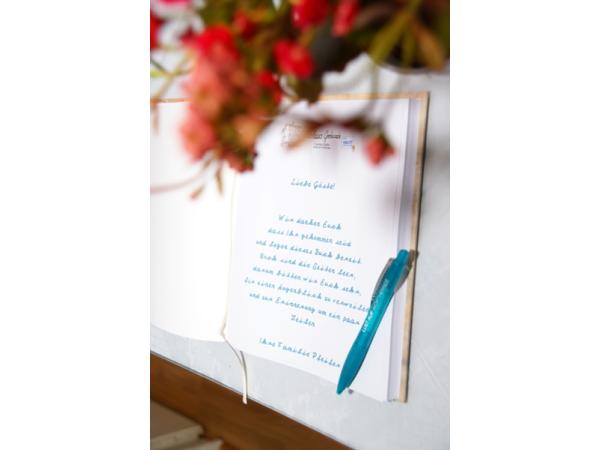 Liebe Gäste!
Wir danken Euch
dass Ihr gekommen seid
und legen dieses Buch bereit.
Noch sind die Seiten leer,
darum bitten wir Euch sehr,
einen Augenblick zu verweilen
und zur Erinnerung um ein paar
Zeilen
Ihre Familie Pfeifer